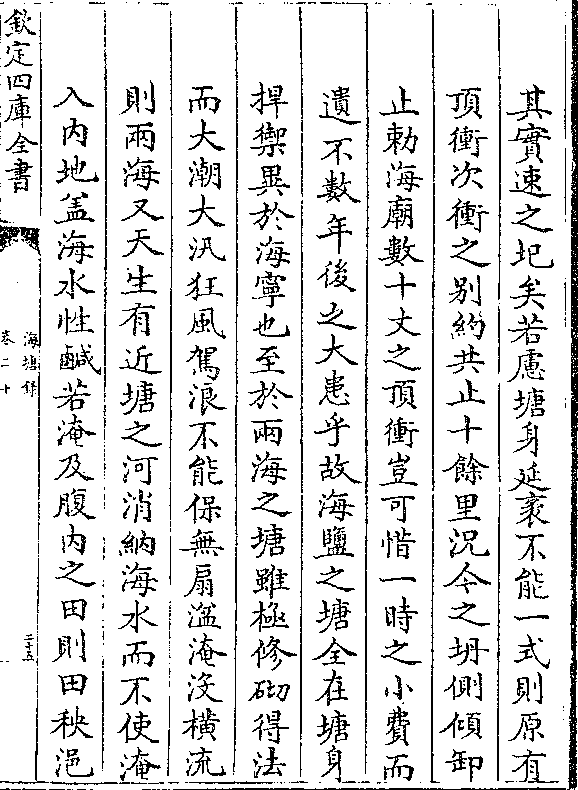 其實速之圯矣若慮塘身延袤不能一式則原有
頂衝次衝之别約共止十餘里況今之坍側傾卸
止勅海廟數十丈之頂衝豈可惜一時之小費而
遺不數年後之大患乎故海鹽之塘全在塘身
捍禦異於海寧也至於兩海之塘雖極修砌得法
而大潮大汛狂風駕浪不能保無扇溢淹沒橫流
則兩海又天生有近塘之河消納海水而不使淹
入内地盖海水性鹹若淹及腹内之田則田秧浥
欽定四庫全書
海塘録
卷二十
二十五